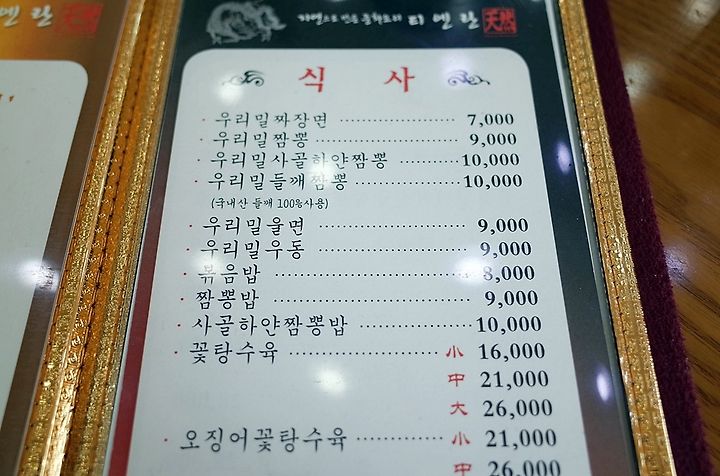 멘란
자연으로 만든 중화요리 티엔란 天然
식 사
· 우리밀짜장면 7,000
· 우리밀짬뽕 9,000
· 우리밀사골하얀짬뽕 10,000
· 우리밀들깨짬뽕 10,000
(국내산 들깨 100%사용)
· 우리밀울면 9,000
· 우리밀우동 9,000
· 볶음밥 8,000
· 짬뽕밥 9,000
· 사골하얀짬뽕밥 10,000
· 꽃탕수육 小 16,000
中 21,000
大 26,000
· 오징어꽃탕수육 小 21,000
中 26,000